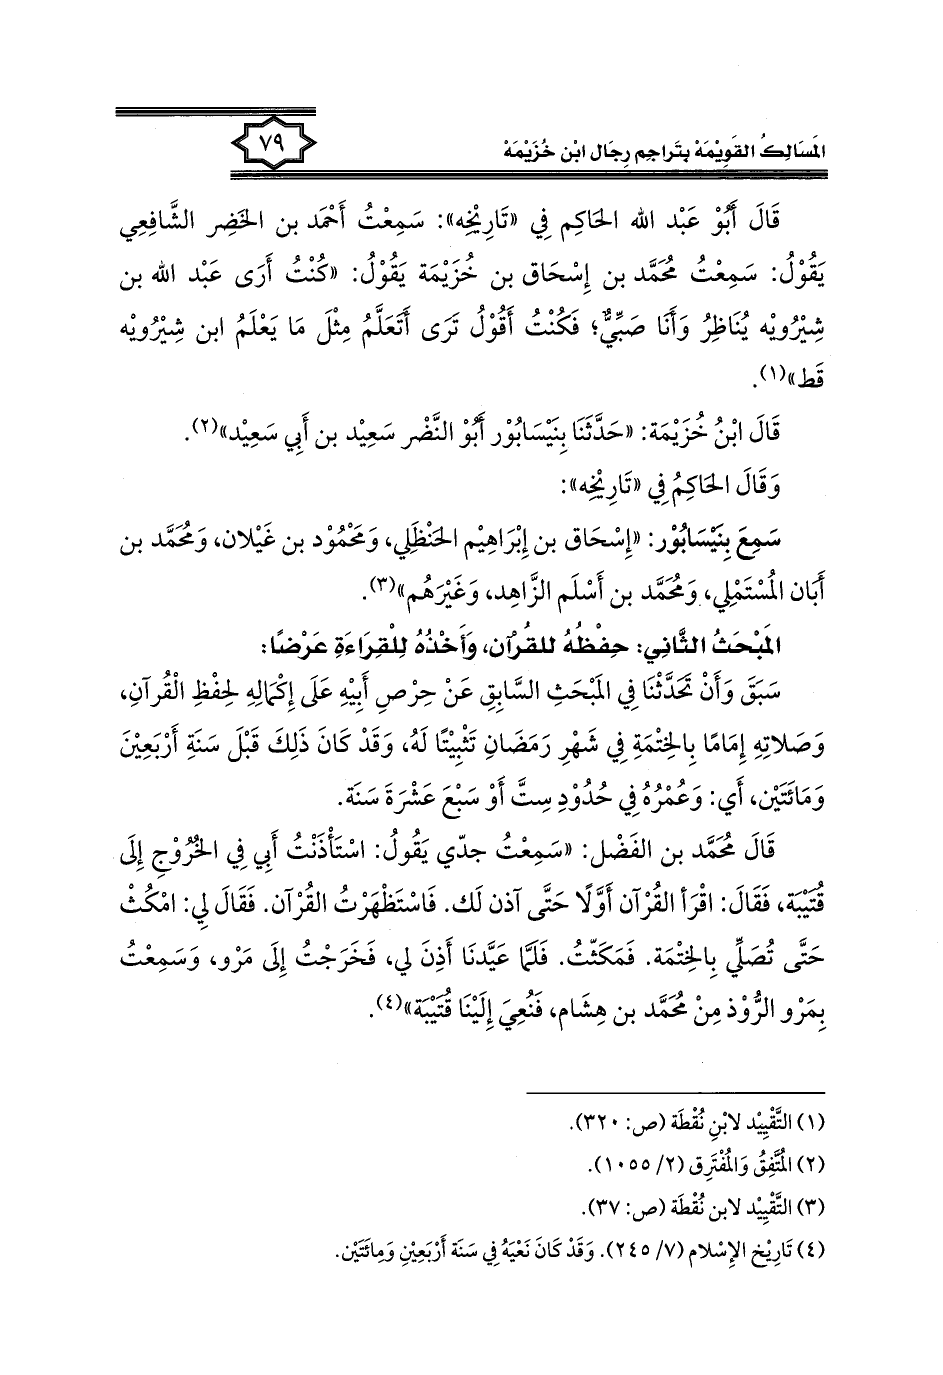 المَسَالِكُ القَوِيْمَهْ بِتَراجِم رِجَال ابْن خُزَيْمَهْ
٧٩
قَالَ أَبُوْ عَبْد الله الحَاكِم فِي «تَارِيْخِه»: سَمِعْتُ أَحْمَد بن الخَضِر الشَّافِعِي
يَقُوْلُ: سَمِعْتُ مُحَمَّد بن إِسْحَاق بن خُزَيْمَة يَقُوْلُ: «كُنْتُ أَرَى عَبْد الله بن
شِيْرُوَيْه يُنَاظِرُ وَأَنَا صَبِيٌّ؛ فَكُنْتُ أَقُوْلُ تَرَى أَتَعَلَّمُ مِثْلَ مَا يَعْلَمُ ابن شِيْرُوَيْه
قَط»(١).
قَالَ ابْنُ خُزَيْمَة: «حَدَّثَنَا بِنَيْسَابُوْر أَبُوْ النَّضْر سَعِيْد بن أَبِي سَعِيْد»(٢).
وَقَالَ الحَاكِمُ فِي «تَارِيْخِه»:
سَمِعَ بِنَيْسَابُوْر: «إِسْحَاق بن إِبْرَاهِيْم الحَنْظَلِي، وَمَحْمُوْد بن غَيْلان، وَمُحَمَّد بن
أَبَان المُسْتَمْلِي، وَمُحَمَّد بن أَسْلَم الزَّاهِد، وَغَيْرَهُم»(٣).
المَبْحَثُ الثَّانِي: حِفْظُهُ للقُرْآن، وَأَخْذُهُ لِلْقِرَاءَةِ عَرْضًا:
سَبَقَ وَأَنْ تَحَدَّثْنَا فِي المَبْحَثِ السَّابِقِ عَنْ حِرْصِ أَبِيْهِ عَلَى إِكْمَالِهِ لِحِفْظِ الْقُرآنِ،
وَصَلاتِهِ إِمَامًا بِالخِتْمَةِ فِي شَهْرِ رَمَضَانِ تَثْبِيْتًا لَهُ، وَقَدْ كَانَ ذَلِكَ قَبْلَ سَنَةِ أَرْبَعِيْنَ
وَمَائَتَيْن، أَي: وَعُمْرُهُ فِي حُدُوْدِ سِتَّ أَوْ سَبْعَ عَشْرَةَ سَنَة.
قَالَ مُحَمَّد بن الفَضْل: «سَمِعْتُ جدّي يَقُوْلُ: اسْتَأْذَنْتُ أَبِي فِي الخُرُوْجِ إِلَى
قُتَيْبَة، فَقَالَ: اقْرَأ القُرْآن أَوَّلًا حَتَّى آذن لَك. فَاسْتَظْهَرْتُ القُرْآن. فَقَالَ لِي: امْكُثْ
حَتَّى تُصَلِّي بِالخِتْمَة. فَمَكَثْتُ. فَلَمَّا عَيَّدنَا أَذِنَ لي، فَخَرَجْتُ إِلَى مَرْو، وَسَمِعْتُ
بِمَرْو الرُّوْذ مِنْ مُحَمَّد بن هِشَام، فَنُعِيَ إِلَيْنَا قُتَيْبَة»(٤).
(١) التَّقْيِيْد لابْنِ نُقْطَة (ص: ٣٢٠).
(٢) المُتَّفِقُ وَالمُفْتَرِق (٢/ ١٠٥٥).
(٣) التَّقْيِيْد لابن نُقْطَة (ص: ٣٧).
(٤) تَارِيْخ الإِسْلام (٧/ ٢٤٥). وَقَدْ كَانَ نَعْيَهُ فِي سَنَة أَرْبَعِيْنِ وَمِائَتَيْن.